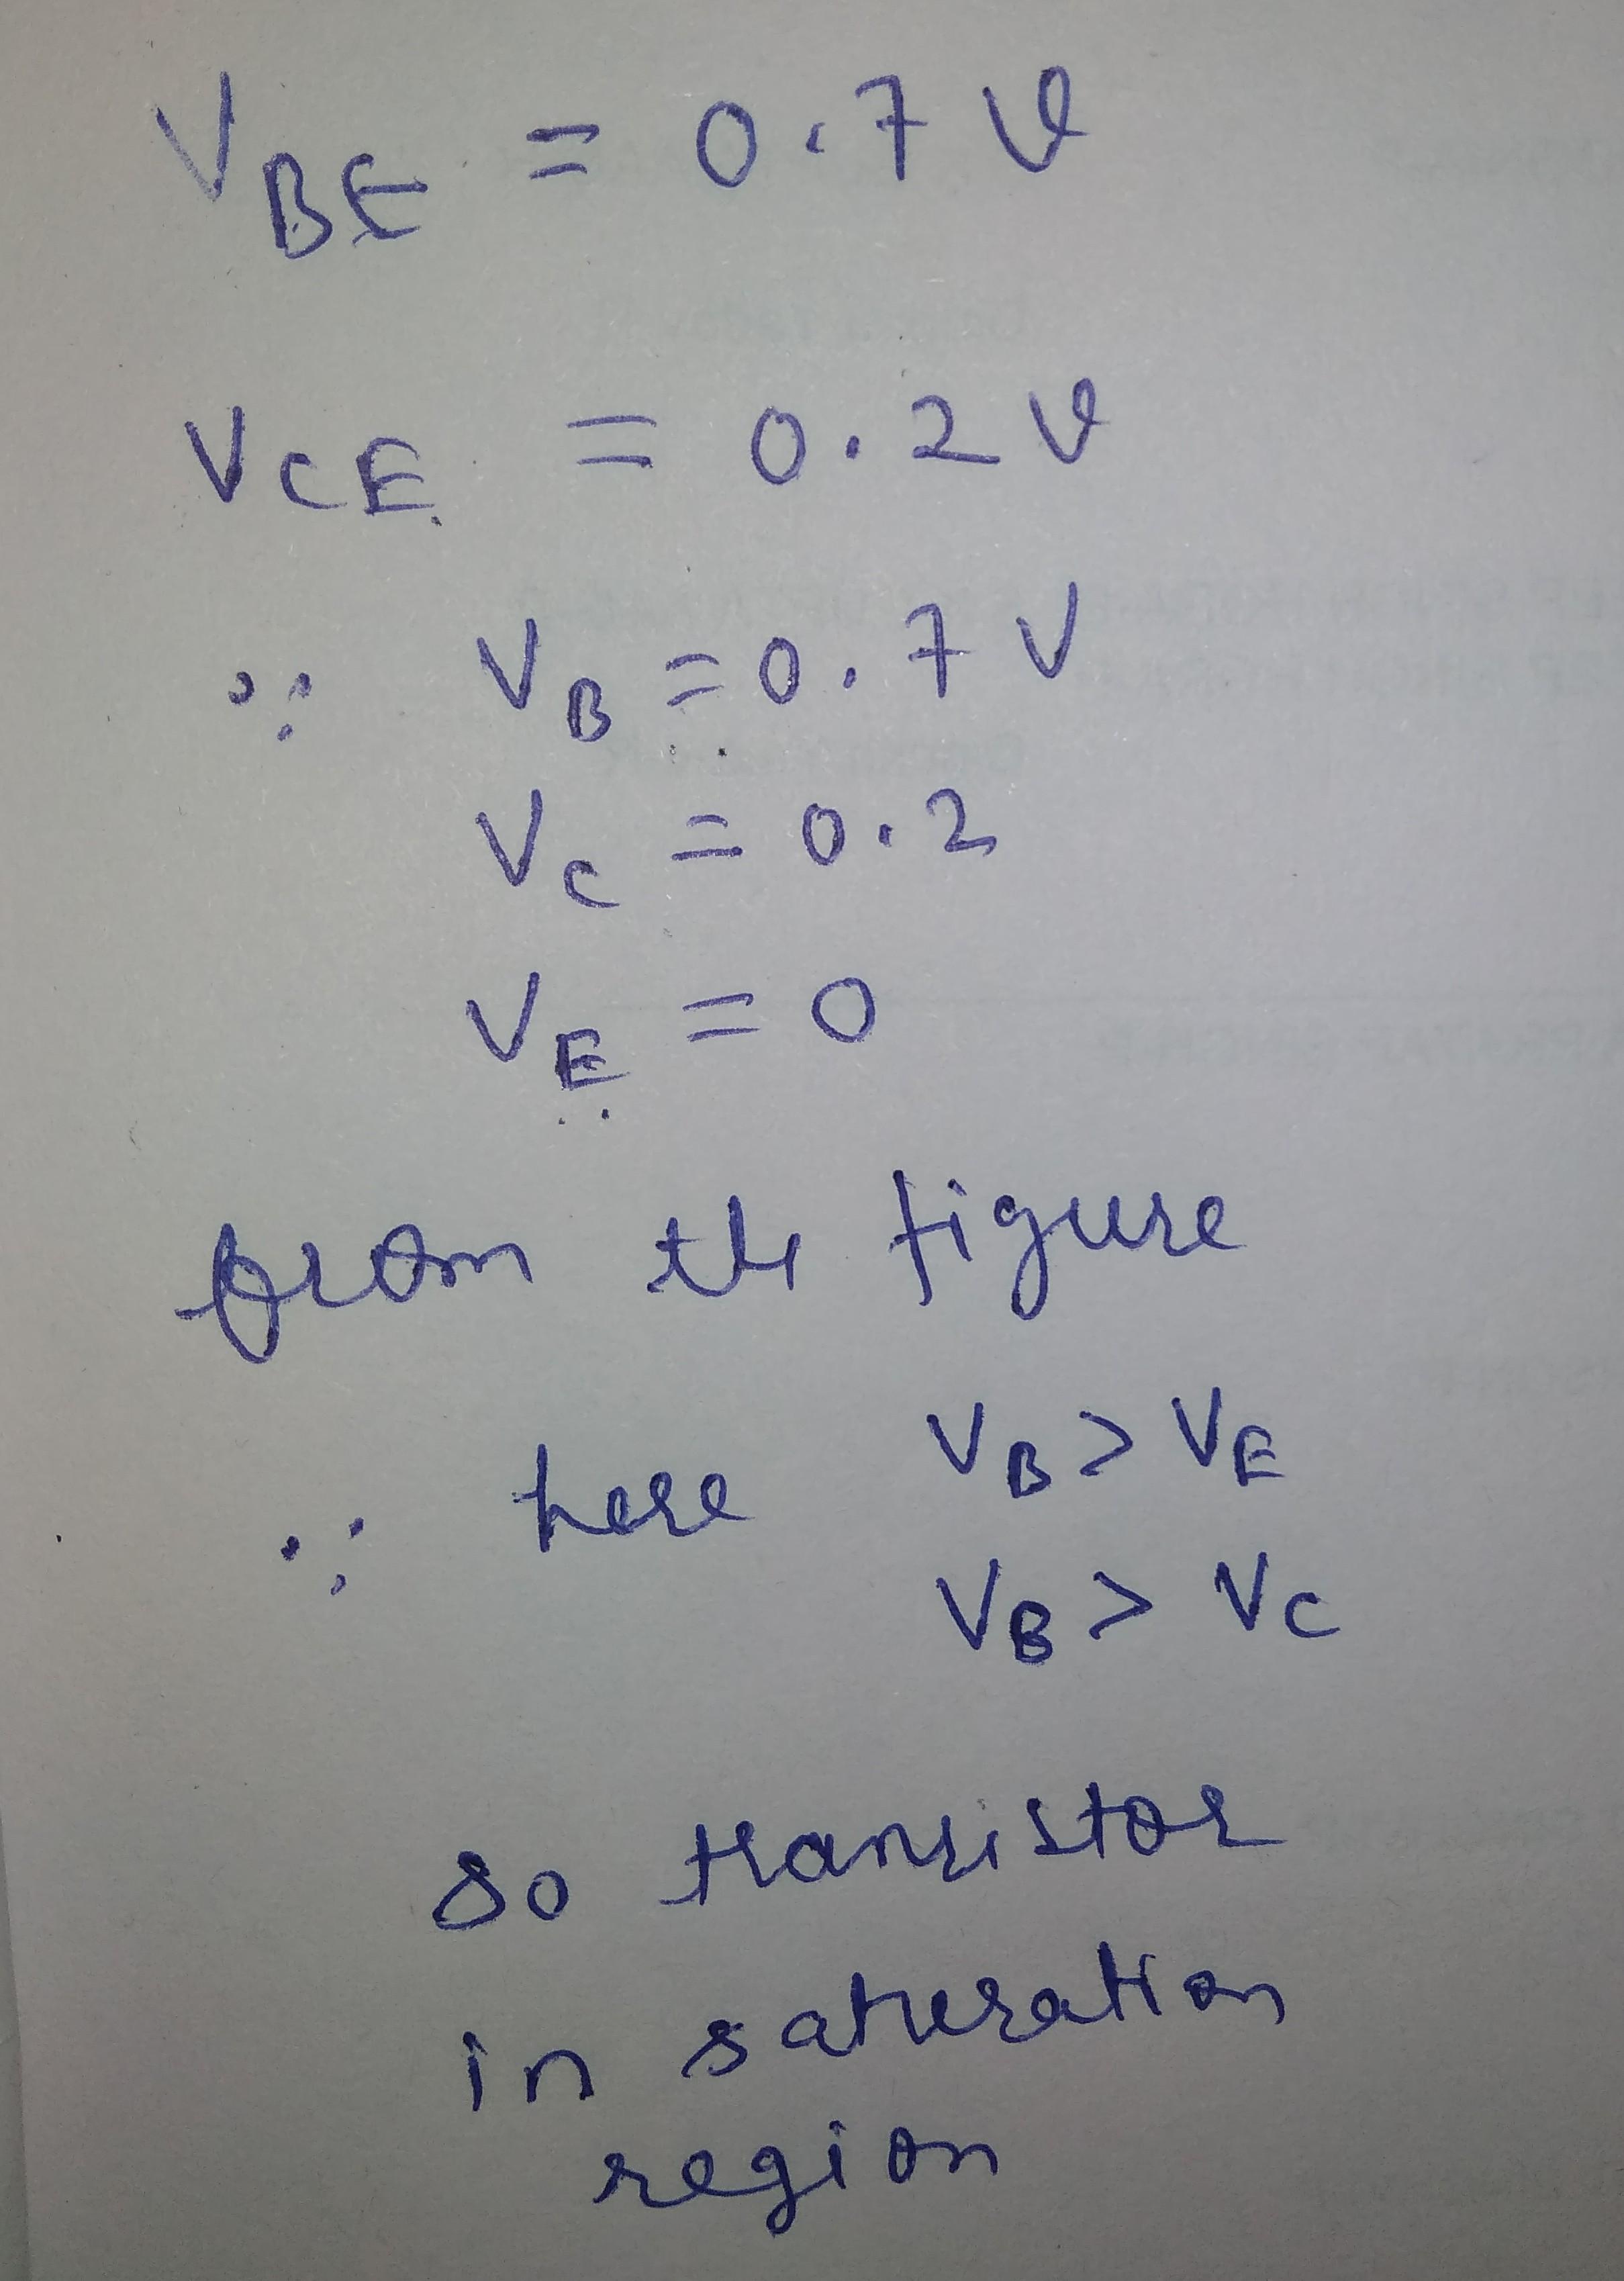 V_BE = 0.7 V
V_CE = 0.2 V
∵ V_B = 0.7 V
V_C = 0.2
V_E = 0
from the figure
∵ here V_B > V_E
V_B > V_C
so transistor
in saturation
region